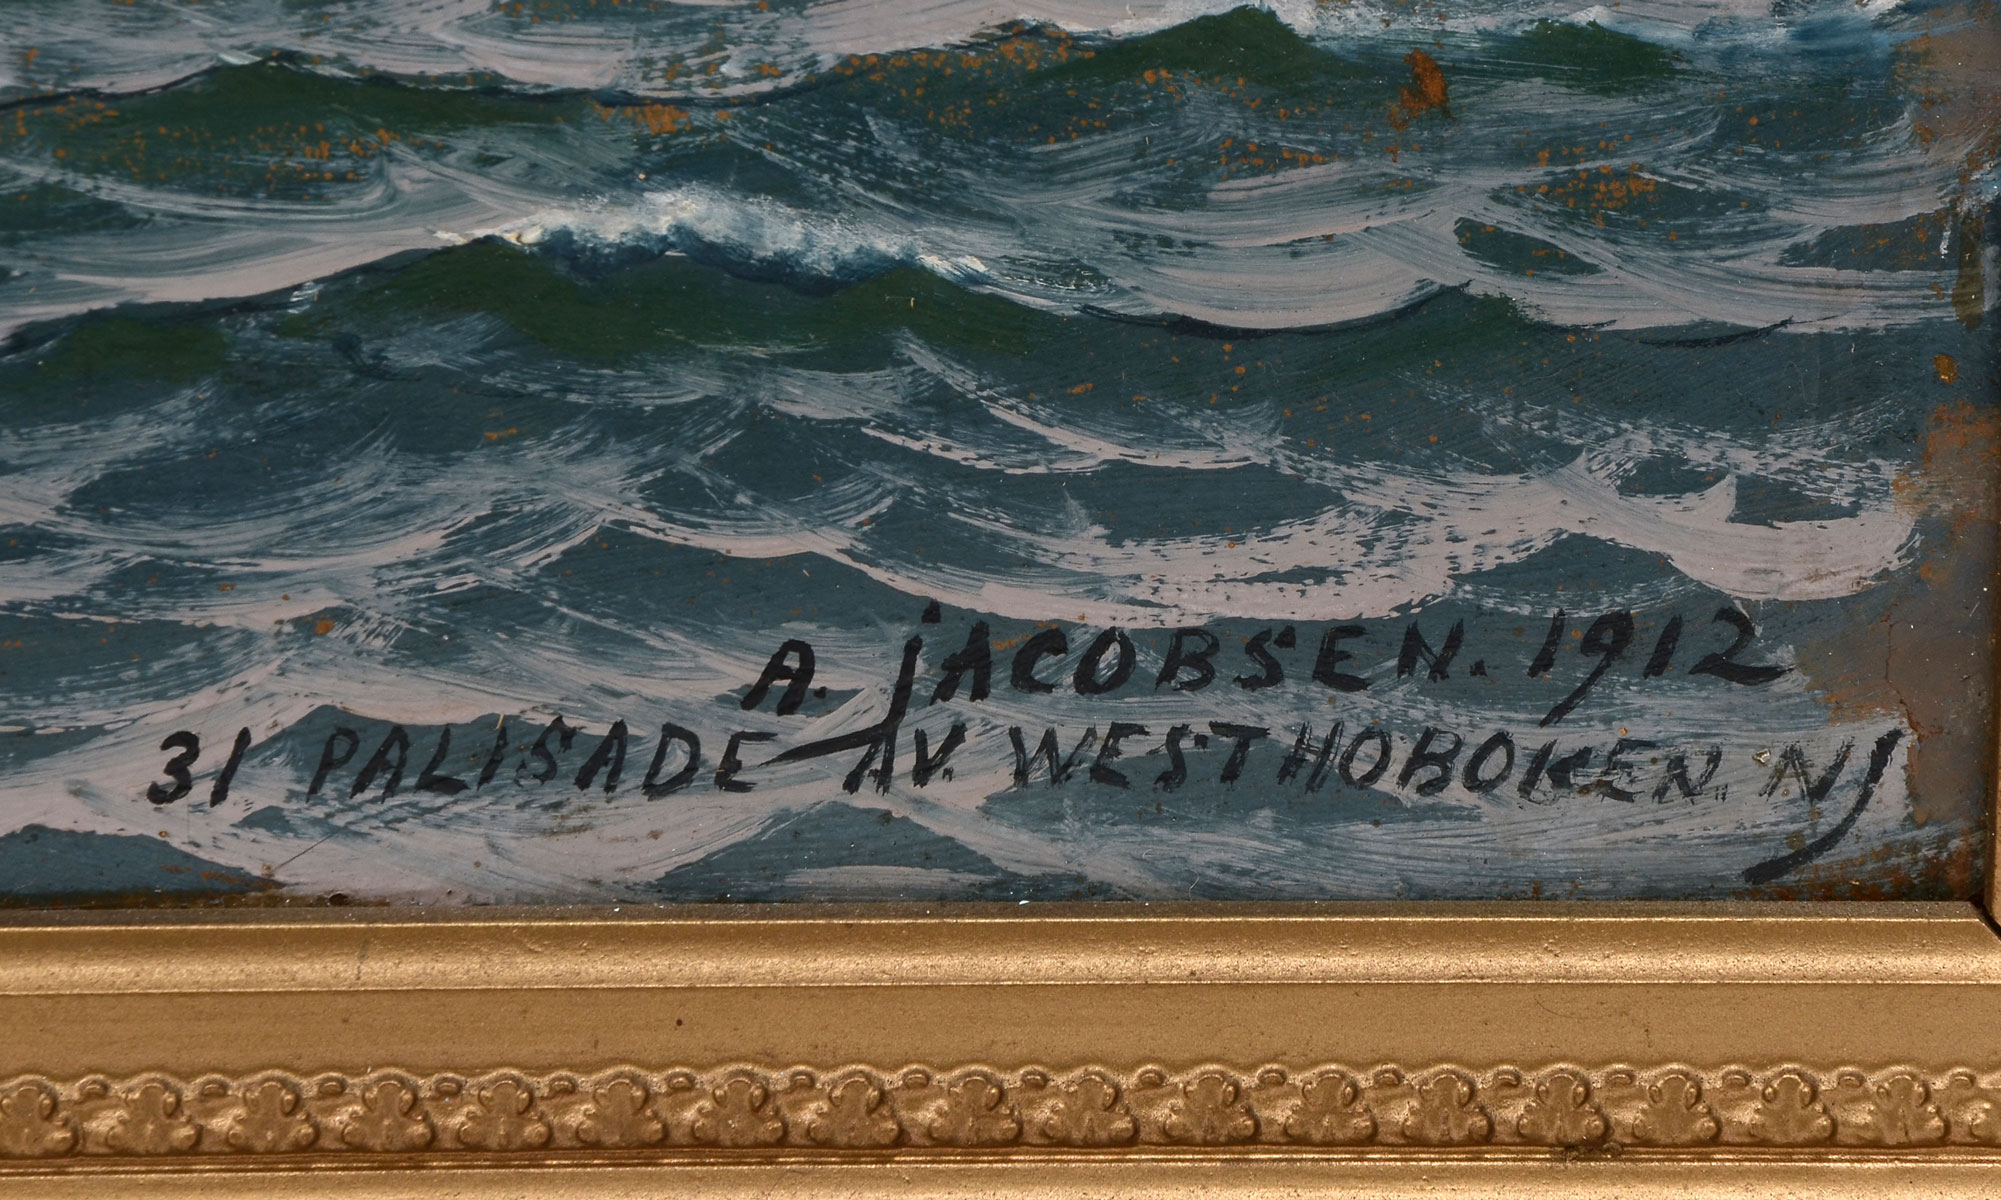 A. jACOBSEN. 1912
31 PALISADE AV. WEST HOBOKEN. NJ